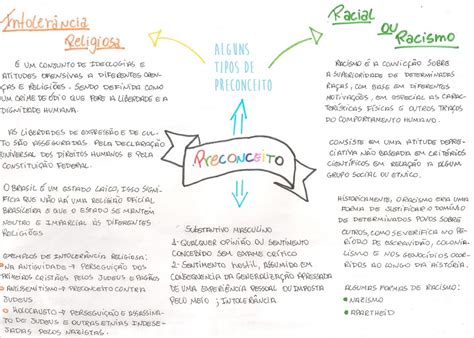 Intolerância
Religiosa
É UM CONJUNTO DE IDEOLOGIAS E
ATITUDES OFENSIVAS A DIFERENTES CREN-
ÇAS E RELIGIÕES. SENDO DEFINIDA COMO
UM CRIME DE ÓDIO QUE FERE A LIBERDADE E A
DIGNIDADE HUMANA.
AS LIBERDADES DE EXPRESSÃO E DE CUL-
TO SÃO ASSEGURADAS PELA DECLARAÇÃO
UNIVERSAL DOS DIREITOS HUMANOS E PELA
CONSTITUIÇÃO FEDERAL.
O BRASIL É UM ESTADO LAICO, ISSO SIGNI-
FICA QUE NÃO HÁ UMA RELIGIÃO OFICIAL
BRASILEIRA E QUE O ESTADO SE MANTÉM
NEUTRO E IMPARCIAL ÀS DIFERENTES
RELIGIÕES.
EXEMPLOS DE INTOLERÂNCIA RELIGIOSA:
NA ANTIGUIDADE → PERSEGUIÇÃO DOS
PRIMEIROS CRISTÃOS PELOS JUDEUS E PAGÃOS
ANTISSEMITISMO → PRECONCEITO CONTRA
JUDEUS
HOLOCAUSTO → PERSEGUIÇÃO E ASSASSINA-
TO DE JUDEUS E OUTRAS ETNIAS INDESE-
JADAS PELOS NAZISTAS.
ALGUNS
TIPOS DE
PRECONCEITO
PRECONCEITO
SUBSTANTIVO MASCULINO
1- QUALQUER OPINIÃO OU SENTIMENTO
CONCEBIDO SEM EXAME CRÍTICO
2- SENTIMENTO HOSTIL, ASSUMIDO EM
CONSEQUÊNCIA DA GENERALIZAÇÃO APRESSADA
DE UMA EXPERIÊNCIA PESSOAL OU IMPOSTA
PELO MEIO; INTOLERÂNCIA
Racial
ou
Racismo
RACISMO É A CONVICÇÃO SOBRE
A SUPERIORIDADE DE DETERMINADAS
RAÇAS, COM BASE EM DIFERENTES
MOTIVAÇÕES, EM ESPECIAL AS CARAC-
TERÍSTICAS FÍSICAS E OUTROS TRAÇOS
DO COMPORTAMENTO HUMANO.
CONSISTE EM UMA ATITUDE DEPRE-
CIATIVA NÃO BASEADA EM CRITÉRIOS
CIENTÍFICOS EM RELAÇÃO A ALGUM
GRUPO SOCIAL OU ÉTNICO.
HISTORICAMENTE, O RACISMO ERA UMA
FORMA DE JUSTIFICAR O DOMÍNIO
DE DETERMINADOS POVOS SOBRE
OUTROS, COMO SE VERIFICA NO PERÍO-
DO DE ESCRAVIDÃO, COLONIA-
LISMO E NOS GENOCÍDIOS OCORRI-
DOS AO LONGO DA HISTÓRIA.
ALGUMAS FORMAS DE RACISMO:
NAZISMO
APARTHEID